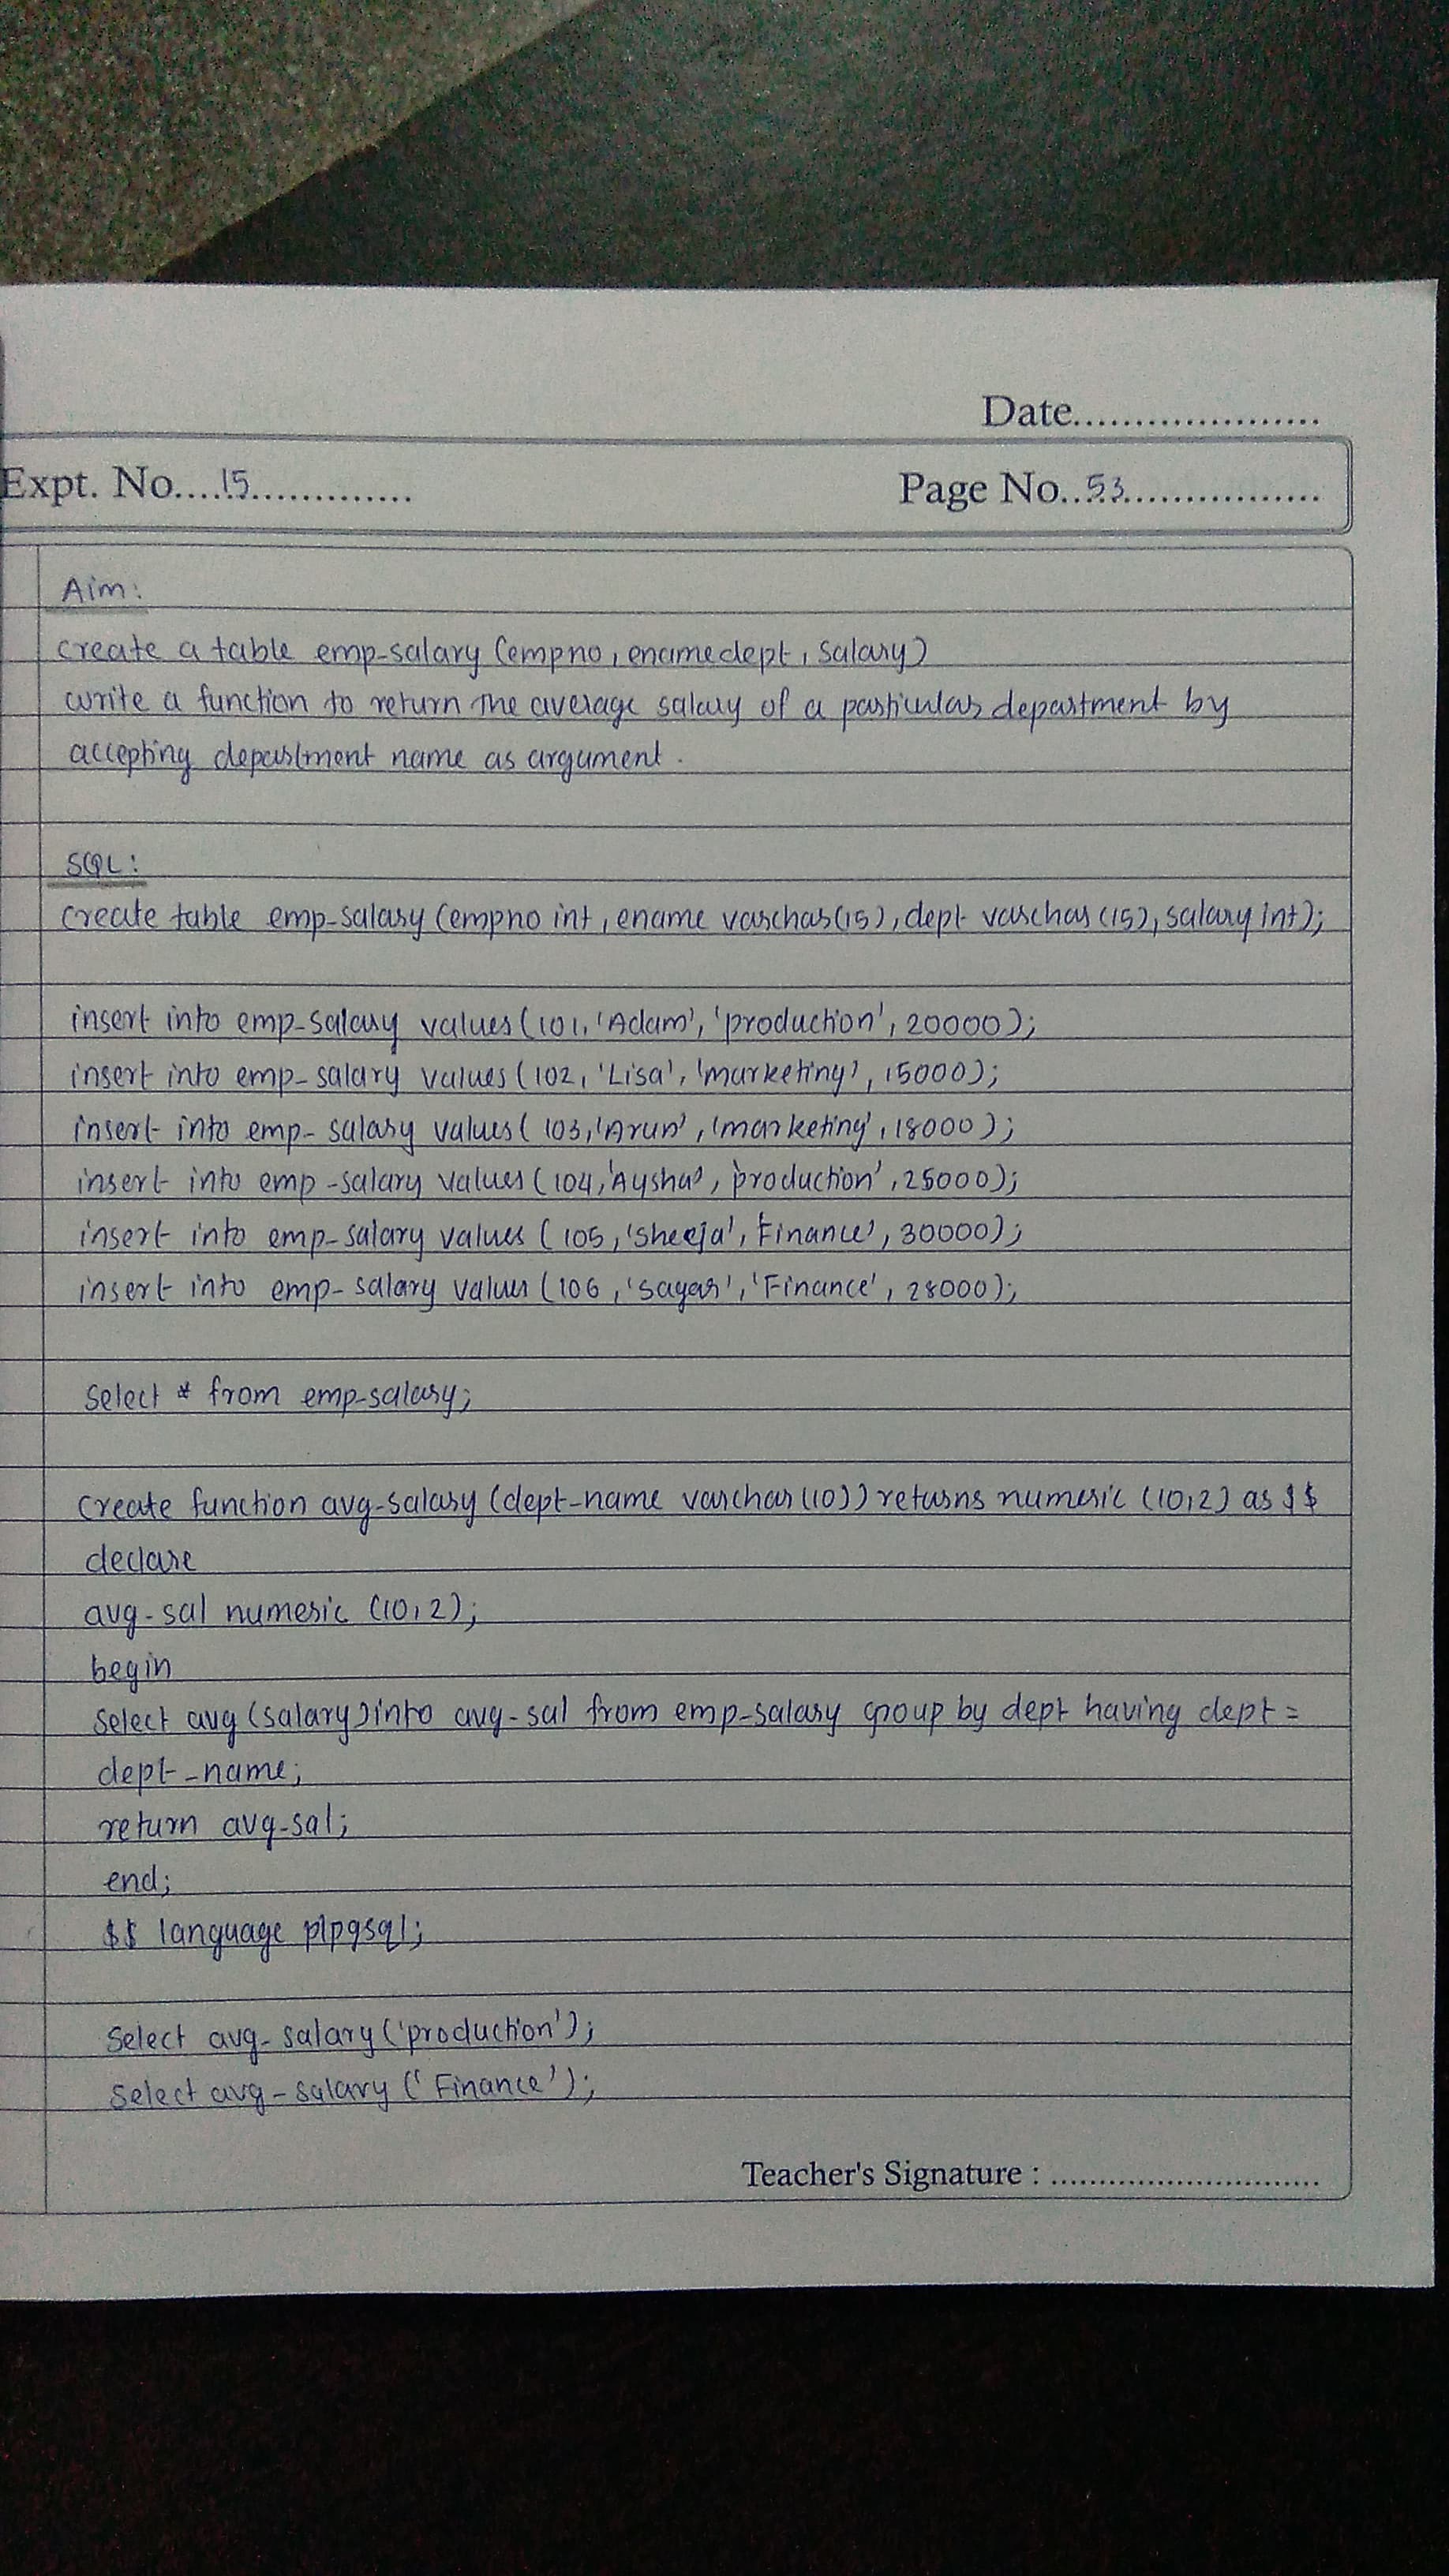 Date....................
Expt. No....15.............
Page No..53................
Aim:
create a table emp-salary (empno, ename dept, salary)
write a function to return the average salary of a particular department by
accepting department name as argument.
SQL:
create table emp-salary (empno int, ename varchar(15), dept varchar (15), salary int);
insert into emp-salary values(101, 'Adam', 'production', 20000);
insert into emp-salary values(102, 'Lisa', 'marketing', 15000);
insert into emp-salary values( 103, 'Arun', 'marketing', 18000);
insert into emp-salary values(104, 'Aysha', 'production', 25000);
insert into emp-salary values (105, 'Sheeja', 'Finance', 30000);
insert into emp-salary values (106, 'sagar', 'Finance', 28000);
select * from emp-salary;
create function avg-salary (dept-name varchar(10)) returns numeric (10,2) as $$
declare
avg-sal numeric (10,2);
begin
select avg (salary) into avg-sal from emp-salary group by dept having dept =
dept-name;
return avg-sal;
end;
$$ language plpgsql;
select avg-salary('production');
select avg-salary ('Finance');
Teacher's Signature : ............................